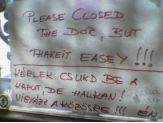 PLEASE CLOSED
THE DOR, BUT
THAKEIT EASEY!!!
KÉRLEK CSUKD BE A
KAPUT, DE HALKAN!
VIGYÁZZ A KÖZÖSRE!!!